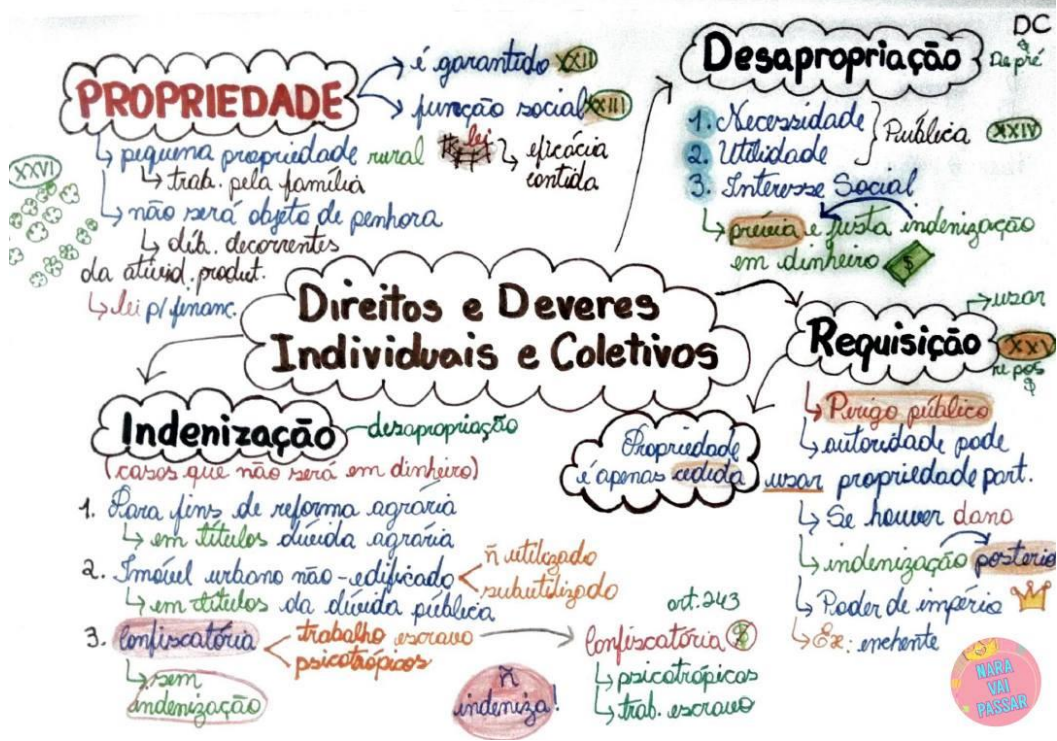 DC
PROPRIEDADE
↳ é garantido XXII
↳ função social XXIII
↳ pequena propriedade rural lei ↳ eficácia contida
↳ trab. pela família
XXVI
↳ não será objeto de penhora
↳ déb. decorrentes
da ativid. product.
↳ lei p/ financ.
Desapropriação
De pré $
1. Necessidade
2. Utilidade
Pública XXIV
3. Interesse Social
↳ prévia e justa indenização
em dinheiro $
Direitos e Deveres
Individuais e Coletivos
Requisição
→ usar
XXV
re pós
$
↳ Perigo público
↳ autoridade pode
usar propriedade part.
↳ Se houver dano
↳ indenização posterio
↳ Poder de império
↳ Ex: enchente
Propriedade
é apenas cedida
Indenização - desapropriação
(casos que não será em dinheiro)
1. Para fins de reforma agrária
↳ em títulos dívida agrária
2. Imóvel urbano não-edificado < ñ utilizado
subutilizado
↳ em títulos da dívida pública
3. Confiscatória < trabalho escravo
psicotrópicos
↳ sem
indenização
art. 243
Confiscatória $
↳ psicotrópicos
↳ trab. escravo
ñ
indeniza!
NARA
VAI
PASSAR